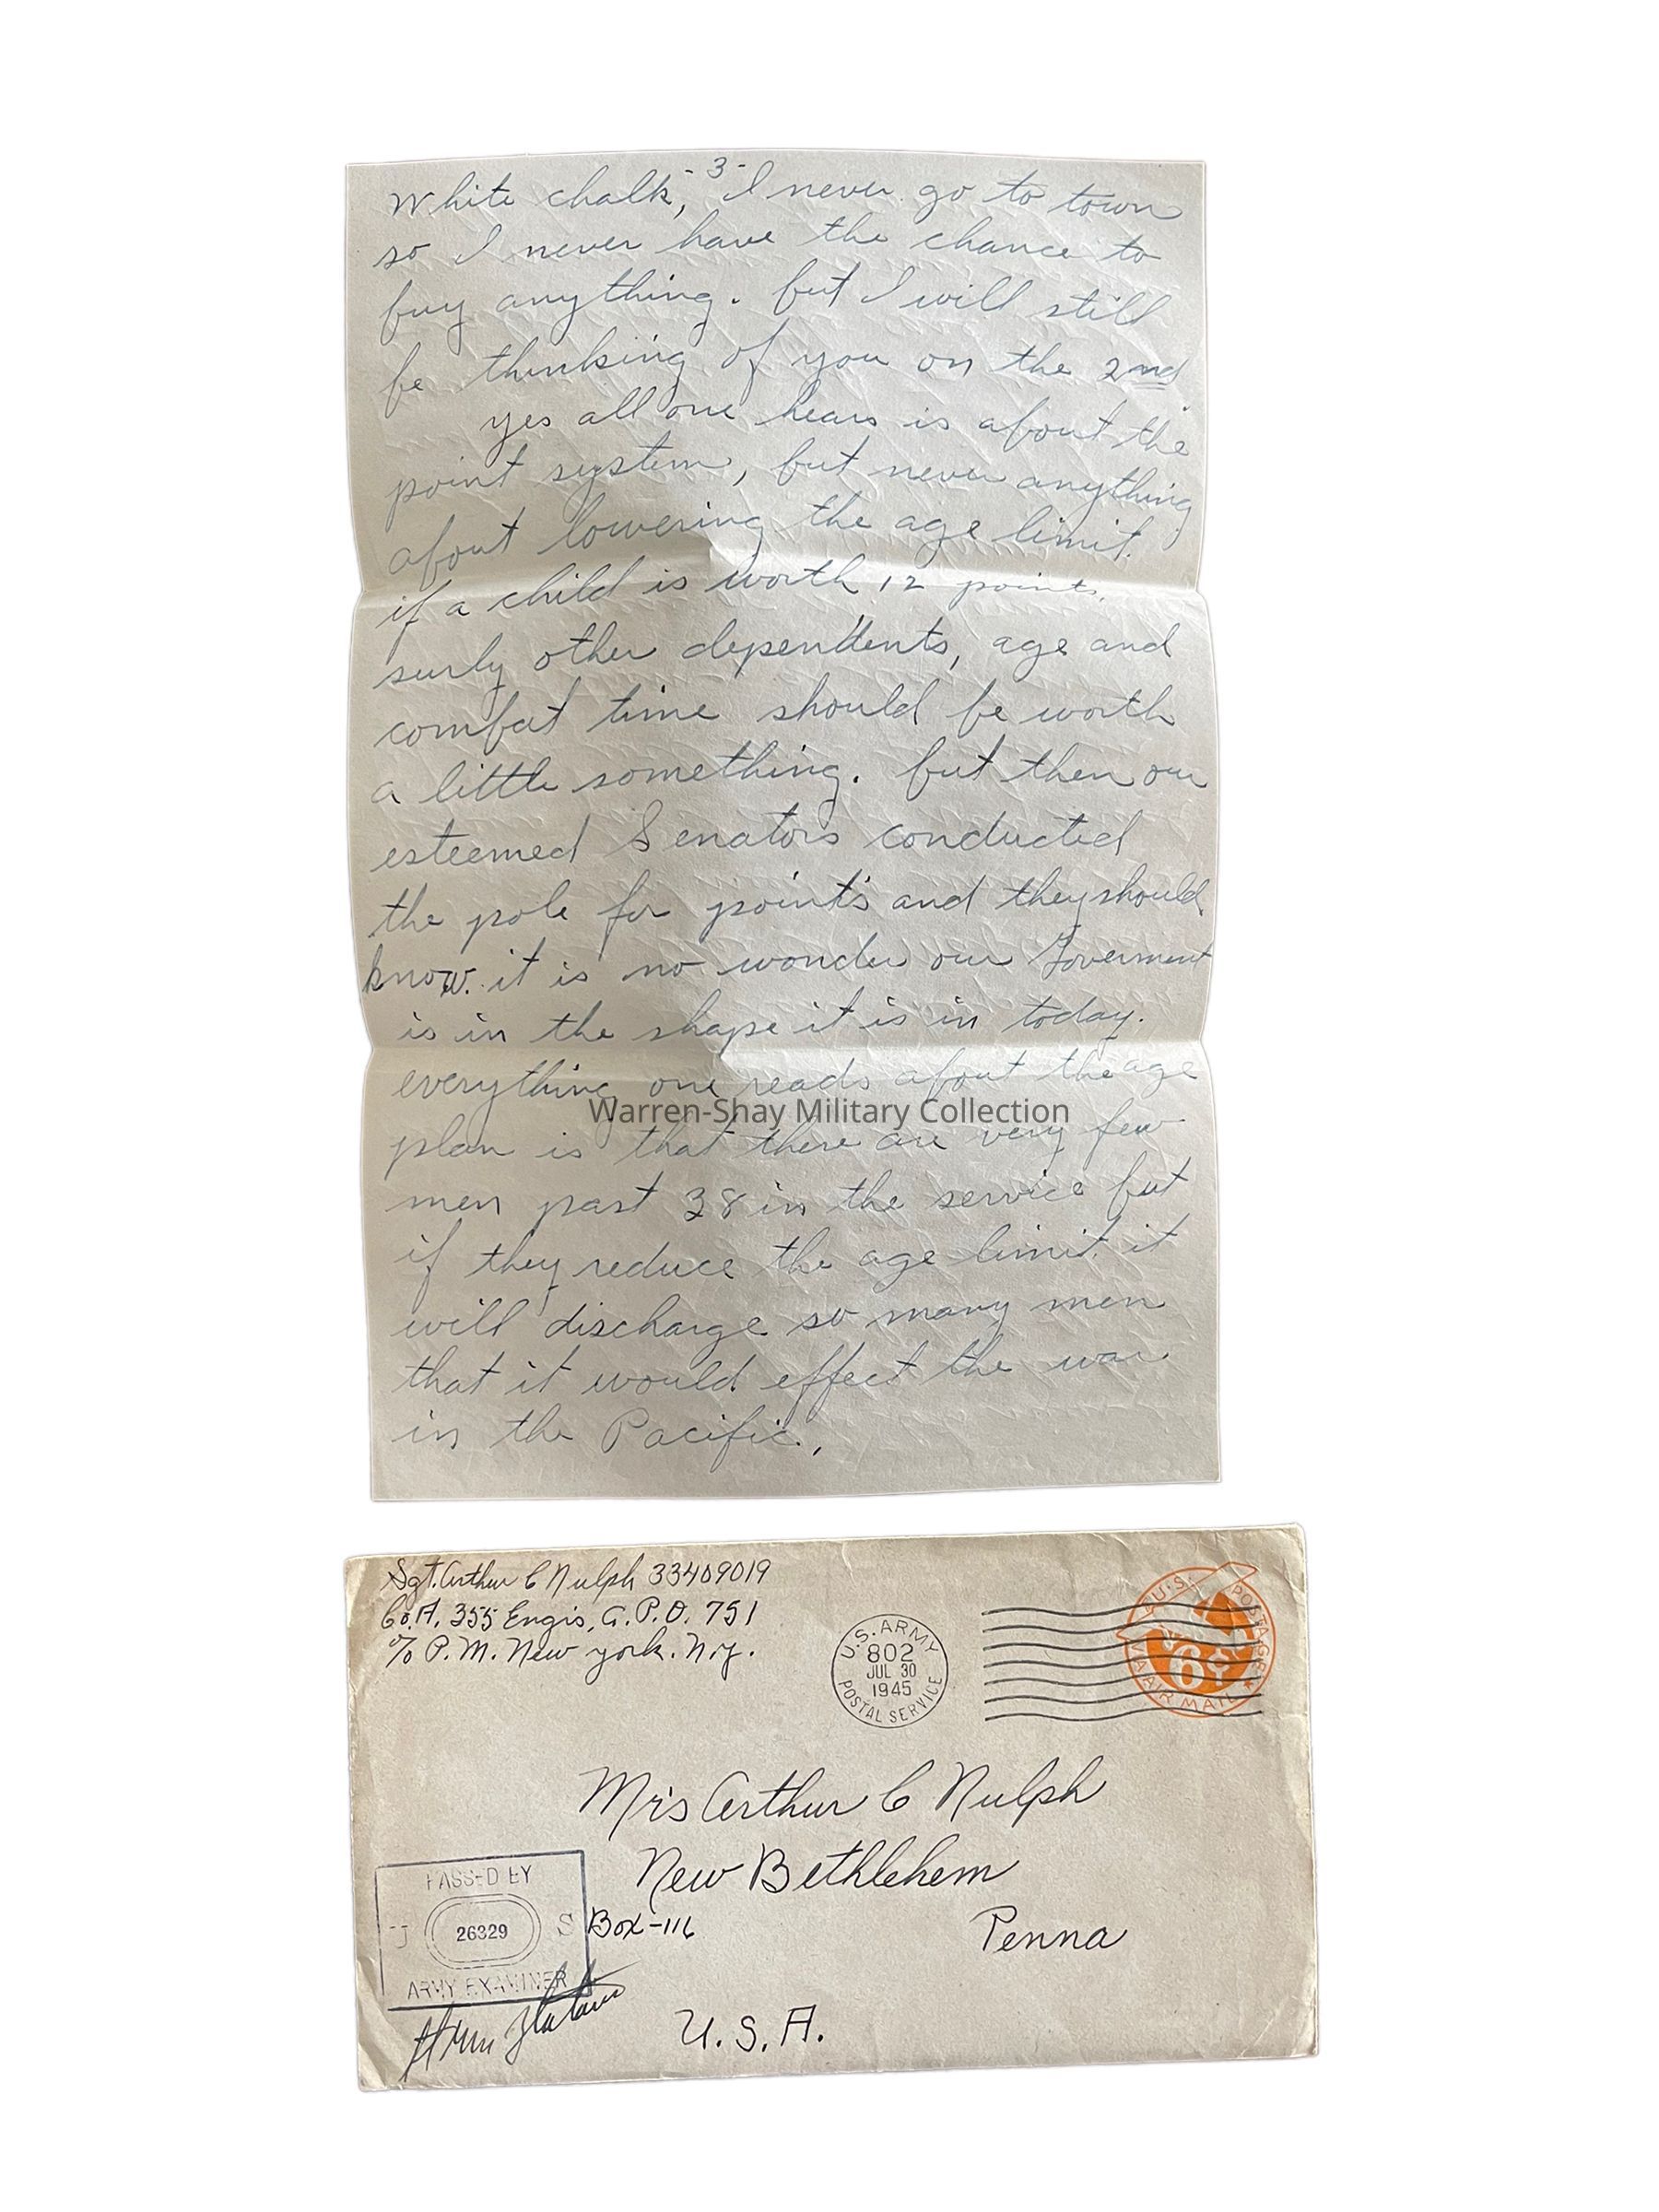 3-
White chalk, I never go to town
so I never have the chance to
buy anything. but I will still
be thinking of you on the 2nd
yes all one hears is about the
point system, but never anything
about lowering the age limit.
if a child is worth 12 points,
surly other dependents, age and
combat time should be worth
a little something. but then our
esteemed Senators conducted
the pole for points and they should
know. it is no wonder our Goverment
is in the shape it is in today.
everything one reads about the age
Warren-Shay Military Collection
plan is that there are very few
men past 38 in the service but
if they reduce the age limit it
will discharge so many men
that it would effect the war
in the Pacific.
Sgt. Arthur C Nulph 33409019
Co. A. 355 Engis, A. P. O. 751
c/o P. M. New york. N.y.
U.S. ARMY
802
JUL 30
1945
POSTAL SERVICE
U.S. POSTAGE
6¢
VIA AIR MAIL
Mrs Arthur C Nulph
New Bethlehem
Box-116
Penna
U.S.A.
PASSED BY
U 26329 S
ARMY EXAMINER